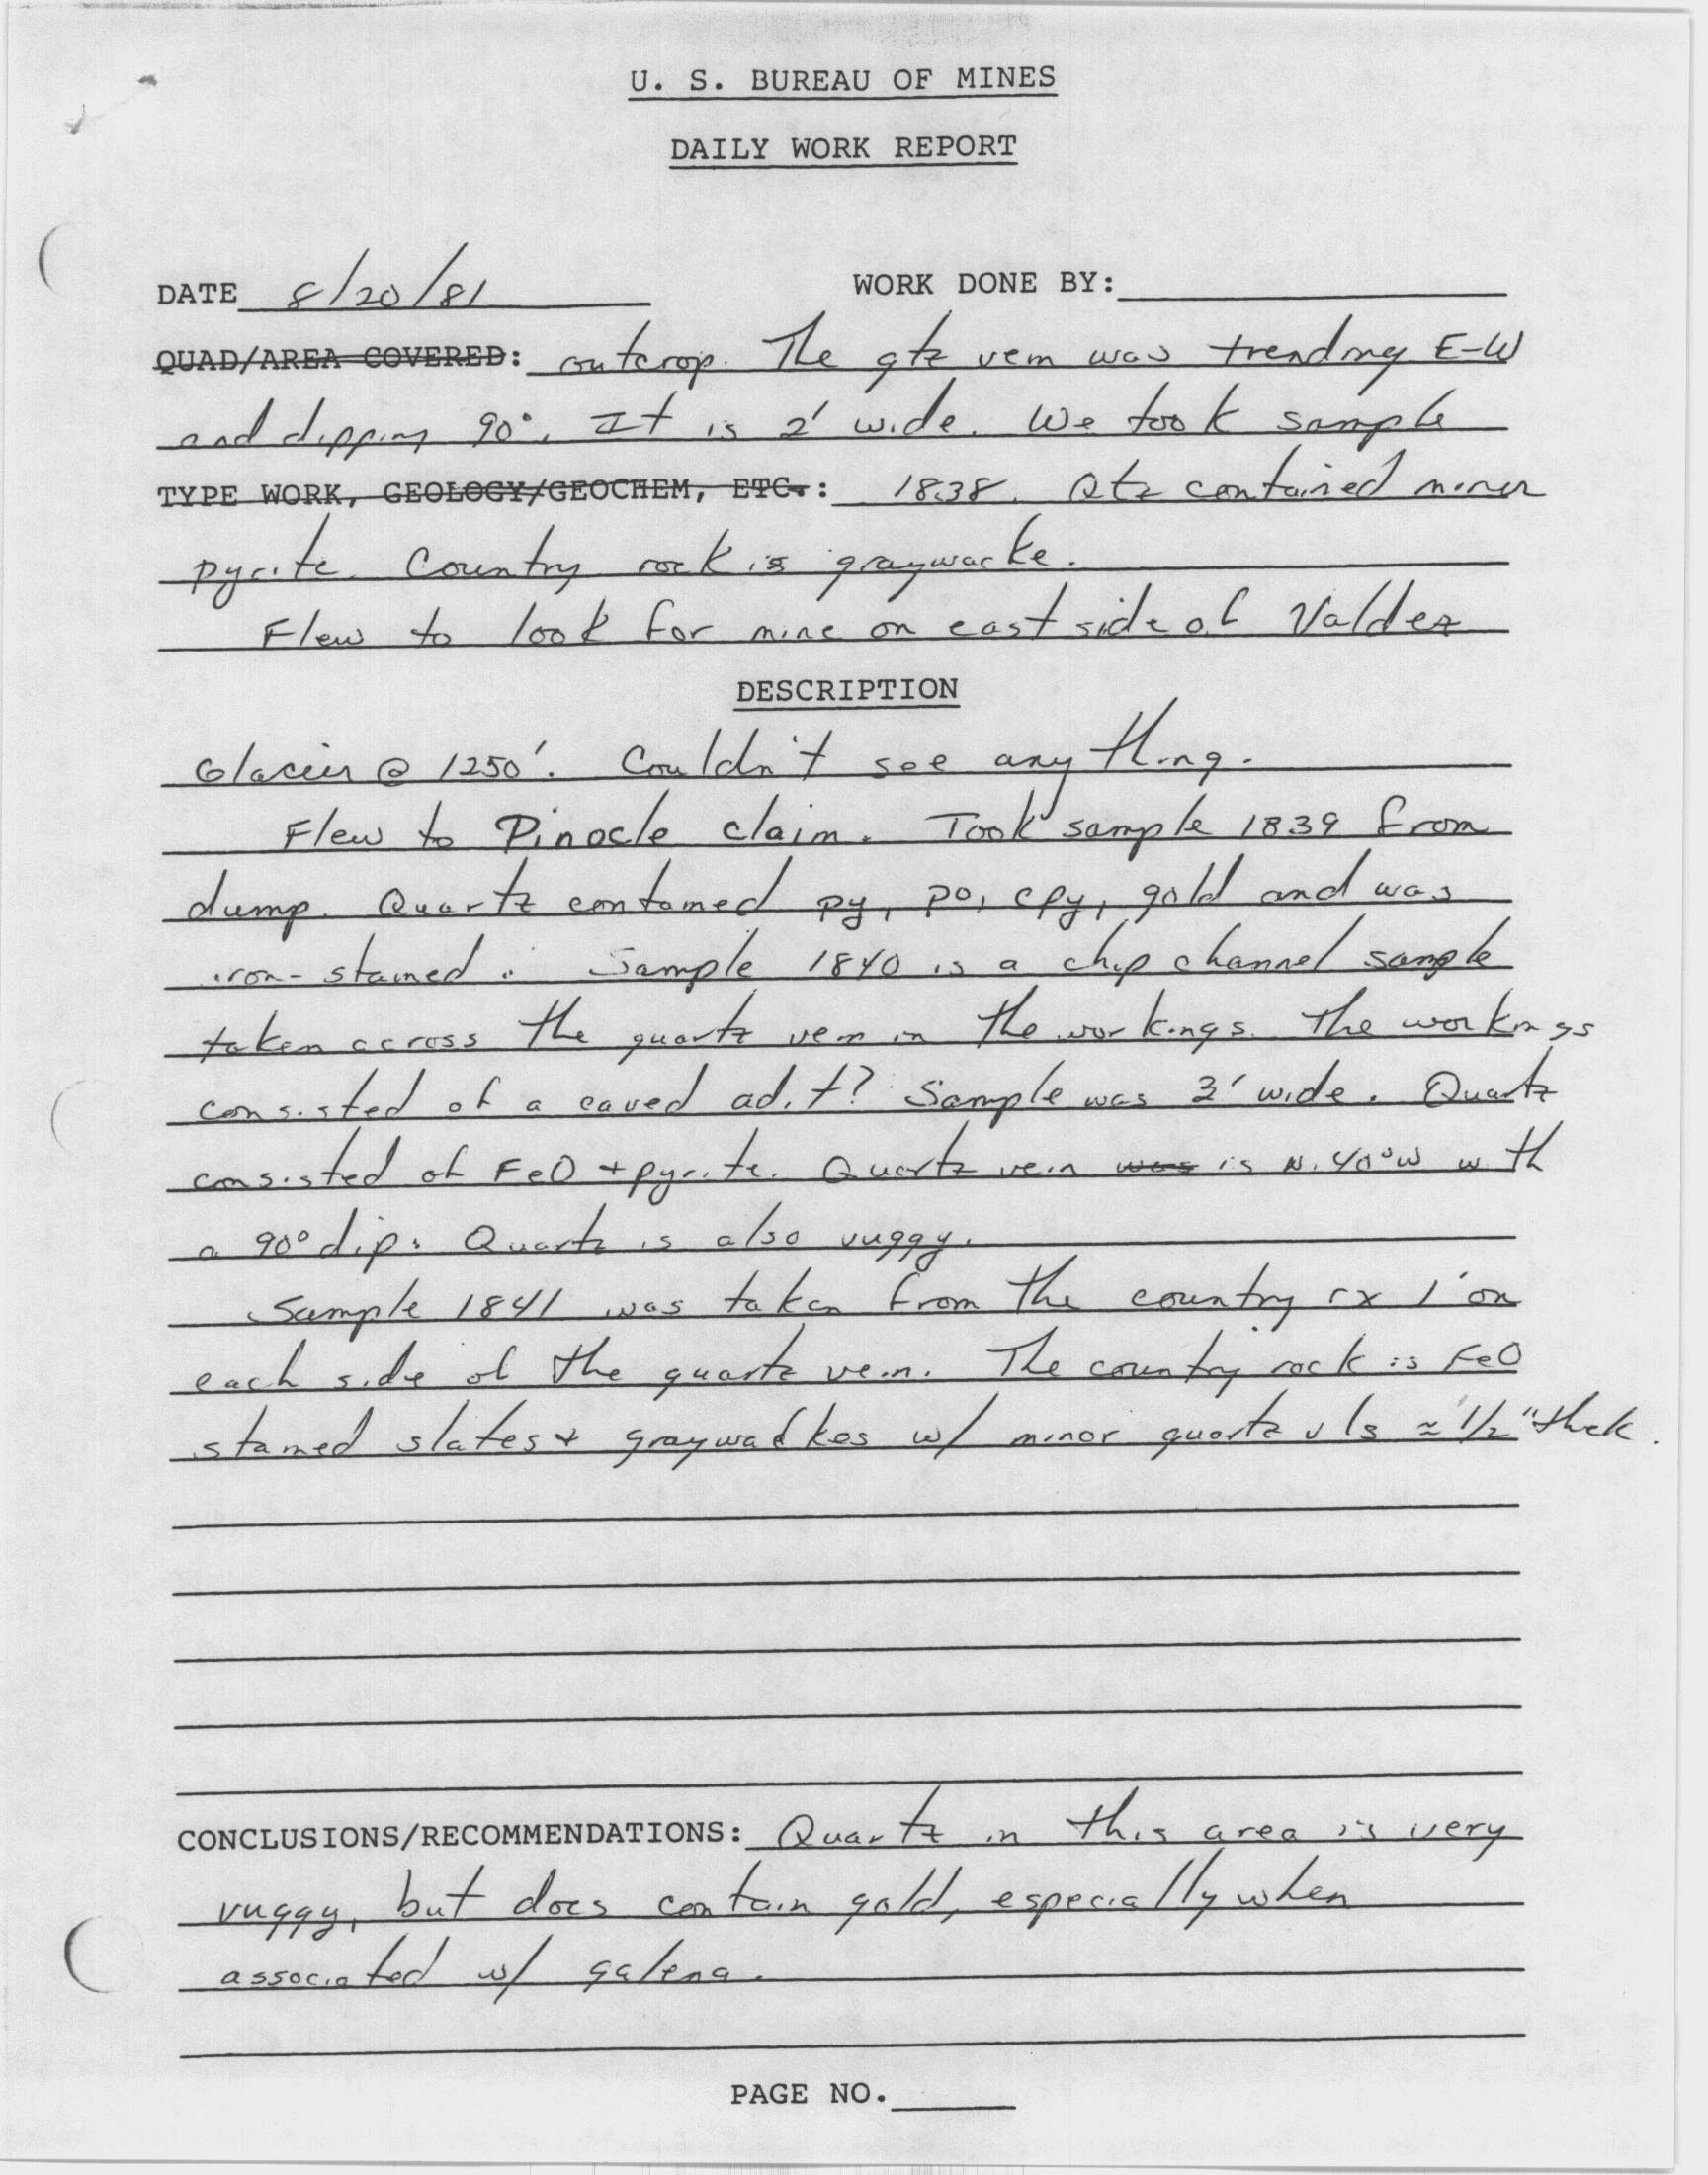 U. S. BUREAU OF MINES
DAILY WORK REPORT
DATE 8/20/81 WORK DONE BY:
QUAD/AREA COVERED: outcrop. The qtz vein was trending E-W
and dipping 90°. It is 2' wide. We took sample
TYPE WORK, GEOLOGY/GEOCHEM, ETC.: 1838. Qtz contained minor
pyrite. Country rock is graywacke.
Flew to look for mine on east side of Valdez
DESCRIPTION
Glacier @ 1250'. Couldn't see anything.
Flew to Pinocle claim. Took sample 1839 from
dump. Quartz contained py, po, cpy, gold and was
iron-stained. Sample 1840 is a chip channel sample
taken across the quartz vein in the workings. The workings
consisted of a caved adit? Sample was 3' wide. Quartz
consisted of FeO + pyrite. Quartz vein was is N. 40° W with
a 90° dip. Quartz is also vuggy.
Sample 1841 was taken from the country rx 1' on
each side of the quartz vein. The country rock is FeO
stained slates & graywackes w/ minor quartz vls ≈ 1/2" thick.
CONCLUSIONS/RECOMMENDATIONS: Quartz in this area is very
vuggy, but does contain gold, especially when
associated w/ galena.
PAGE NO.